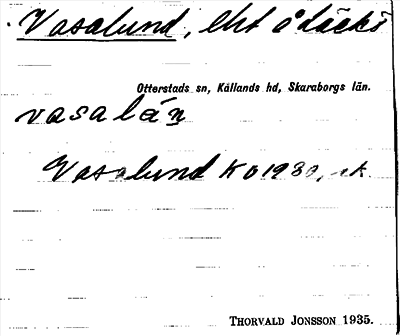 Vasalund, lht å Läckö
Otterstads sn, Kållands hd, Skaraborgs län.
vasalán
Vasalund KB 1930, rk
THORVALD JONSSON 1935.